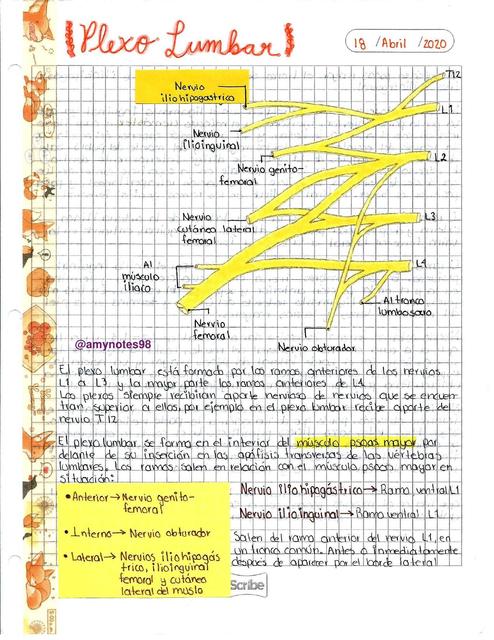 Plexo Lumbar
18 / Abril / 2020
T12
Nervio
iliohipogastrico
L1
Nervio
Ilioinguinal
L2
Nervio genito-
femoral
Nervio
cutáneo lateral
femoral
L3
Al
músculo
iliaco
L4
Al tronco
lumbosacro
Nervio
femoral
Nervio obturador
@amynotes98
El plexo lumbar está formado por las ramas anteriores de los nervios
L1 a L3 y la mayor parte los ramos anteriores de L4
Los plexos siempre recibirán aporte nervioso de nervios que se encuen
tran superior a ellos, por ejemplo en el plexo lumbar recibe aporte del
nervio T12
El plexo lumbar se forma en el interior del músculo psoas mayor por
delante de su inserción en las apófisis transversas de las vértebras
lumbares. Los ramos salen en relación con el músculo psoas mayor en
situación:
• Anterior → Nervio genito-
femoral
• Interno → Nervio obturador
• Lateral → Nervios iliohipogás
trico, ilioinguinal
femoral y cutáneo
lateral del muslo
Nervio Iliohipogástrico → Rama ventral L1
Nervio ilioinguinal → Rama ventral L1
Salen del ramo anterior del nervio L1, en
un tronco común. Antes o inmediatamente
después de aparecer por el borde lateral
Scribe